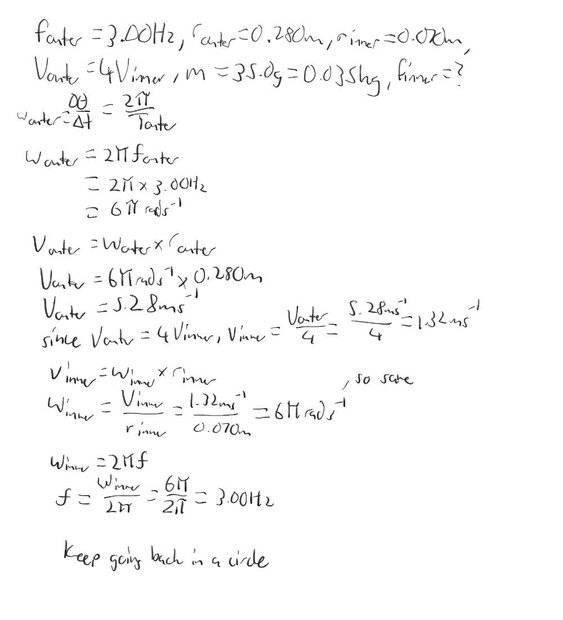 fouter = 3.00Hz, router = 0.280m, rinner = 0.070m,
Vouter = 4Vinner, m = 35.0g = 0.035kg, finner = ?
wouter = Δθ/Δt = 2π/Touter
wouter = 2πfouter
= 2π × 3.00Hz
= 6π rads⁻¹
Vouter = wouter × router
Vouter = 6π rads⁻¹ × 0.280m
Vouter = 5.28ms⁻¹
since Vouter = 4Vinner, Vinner = Vouter/4 = 5.28ms⁻¹/4 = 1.32ms⁻¹
Vinner = winner × rinner
winner = Vinner/rinner = 1.32ms⁻¹/0.070m = 6π rads⁻¹, so same
winner = 2πf
f = winner/2π = 6π/2π = 3.00Hz
Keep going back in a circle